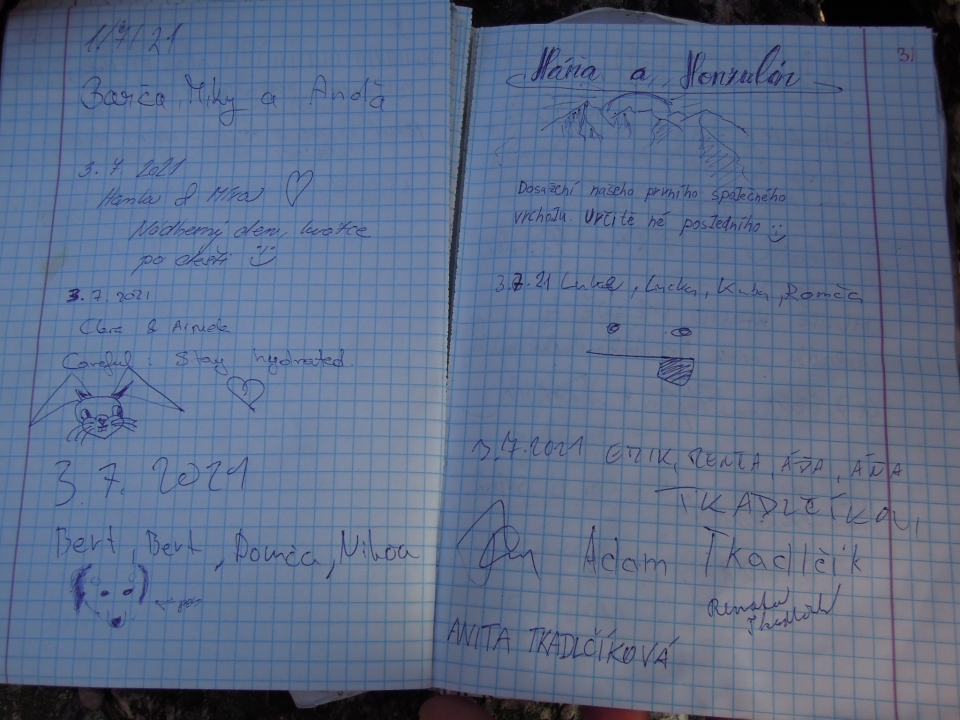 1/7/21
Barča, Miky a Anďa
3. 7. 2021
Hanka & Míra
Nádherný den, kvítce
po dešti :)
3. 7. 2021
Clara &
Careful: Stay hydrated.
3. 7. 2021
Bert, Bert, Domča, Nikča
← pes
31
Máňa a Honzulán
Dosažení našeho prvního společného
vrcholu. Určitě né posledního :)
3.7.21 Lukáš, Lucka, Kuba, Romča
3.7.2021 ERIK, RENTA, ÁĎA, ÁŇA
TKADLČÍKOVI,
Adam Tkadlčík
Renata
ANITA TKADLČÍKOVÁ